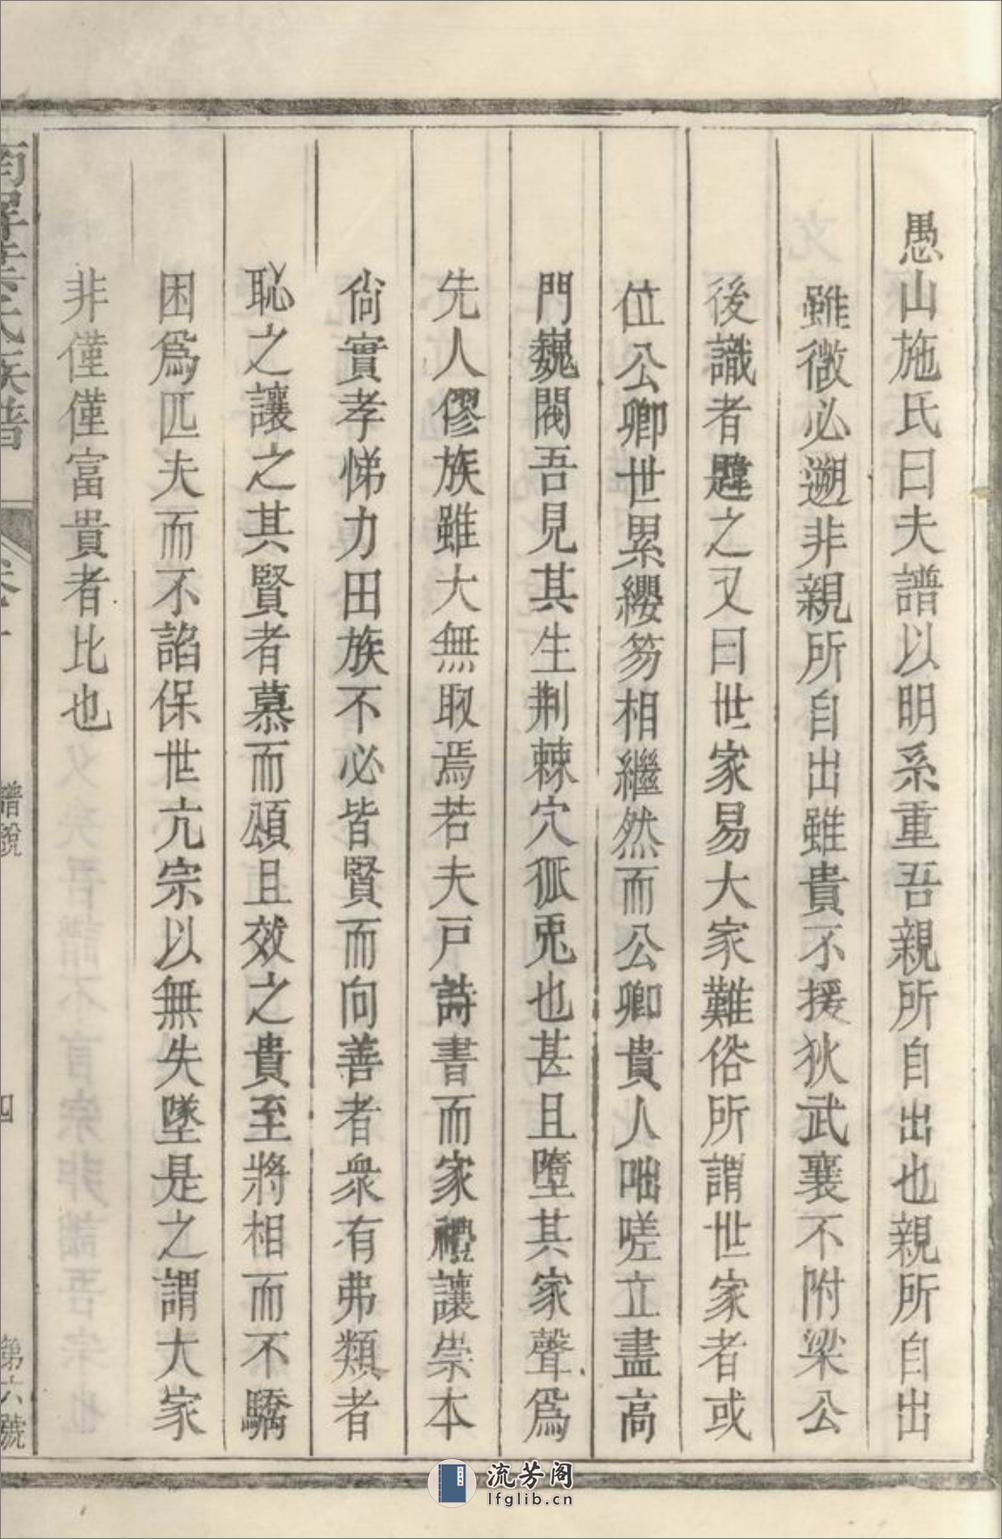 愚山施氏曰夫譜以明系重吾親所自出也親所自出
雖微必遡非親所自出雖貴不援狄武襄不附梁公
後識者韙之又曰世家易大家難俗所謂世家者或
位公卿世累纓笏相繼然而公卿貴人咄嗟立盡高
門巍閥吾見其生荆棘穴狐兎也甚且墮其家聲爲
先人僇族雖大無取焉若夫戸詩書而家禮讓崇本
尙實孝悌力田族不必皆賢而向善者衆有弗類者
恥之讓之其賢者慕而頌且效之貴至將相而不驕
困爲匹夫而不諂保世亢宗以無失墜是之謂大家
非僅僅富貴者比也
氏族譜
卷一
譜說
四
第六號
流芳阁
lfglib.cn